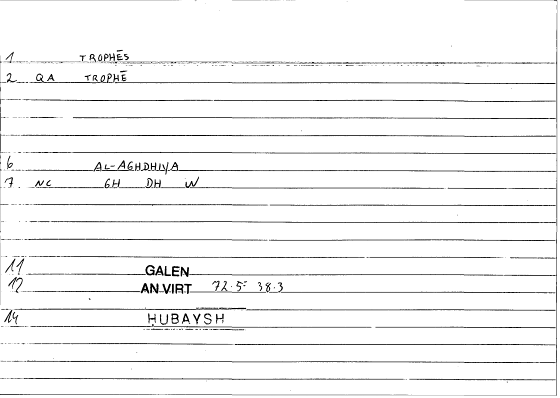 1 TROPHĒS
2 QA TROPHĒ
6 AL-AGHDHIYA
7. NC GH DH IN
11 GALEN
12 AN VIRT 72.5 38.3
14 HUBAYSH